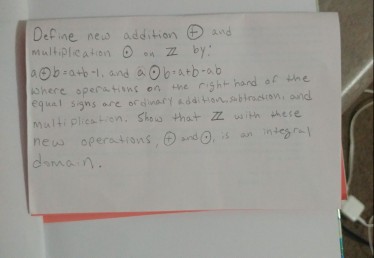 Define new addition ⊕ and
multiplication ⊙ on ℤ by:
a⊕b=a+b-1, and a⊙b=a+b-ab
where operations on the right hand of the
equal signs are ordinary addition, subtraction, and
multiplication. Show that ℤ with these
new operations, ⊕ and ⊙, is an integral
domain.